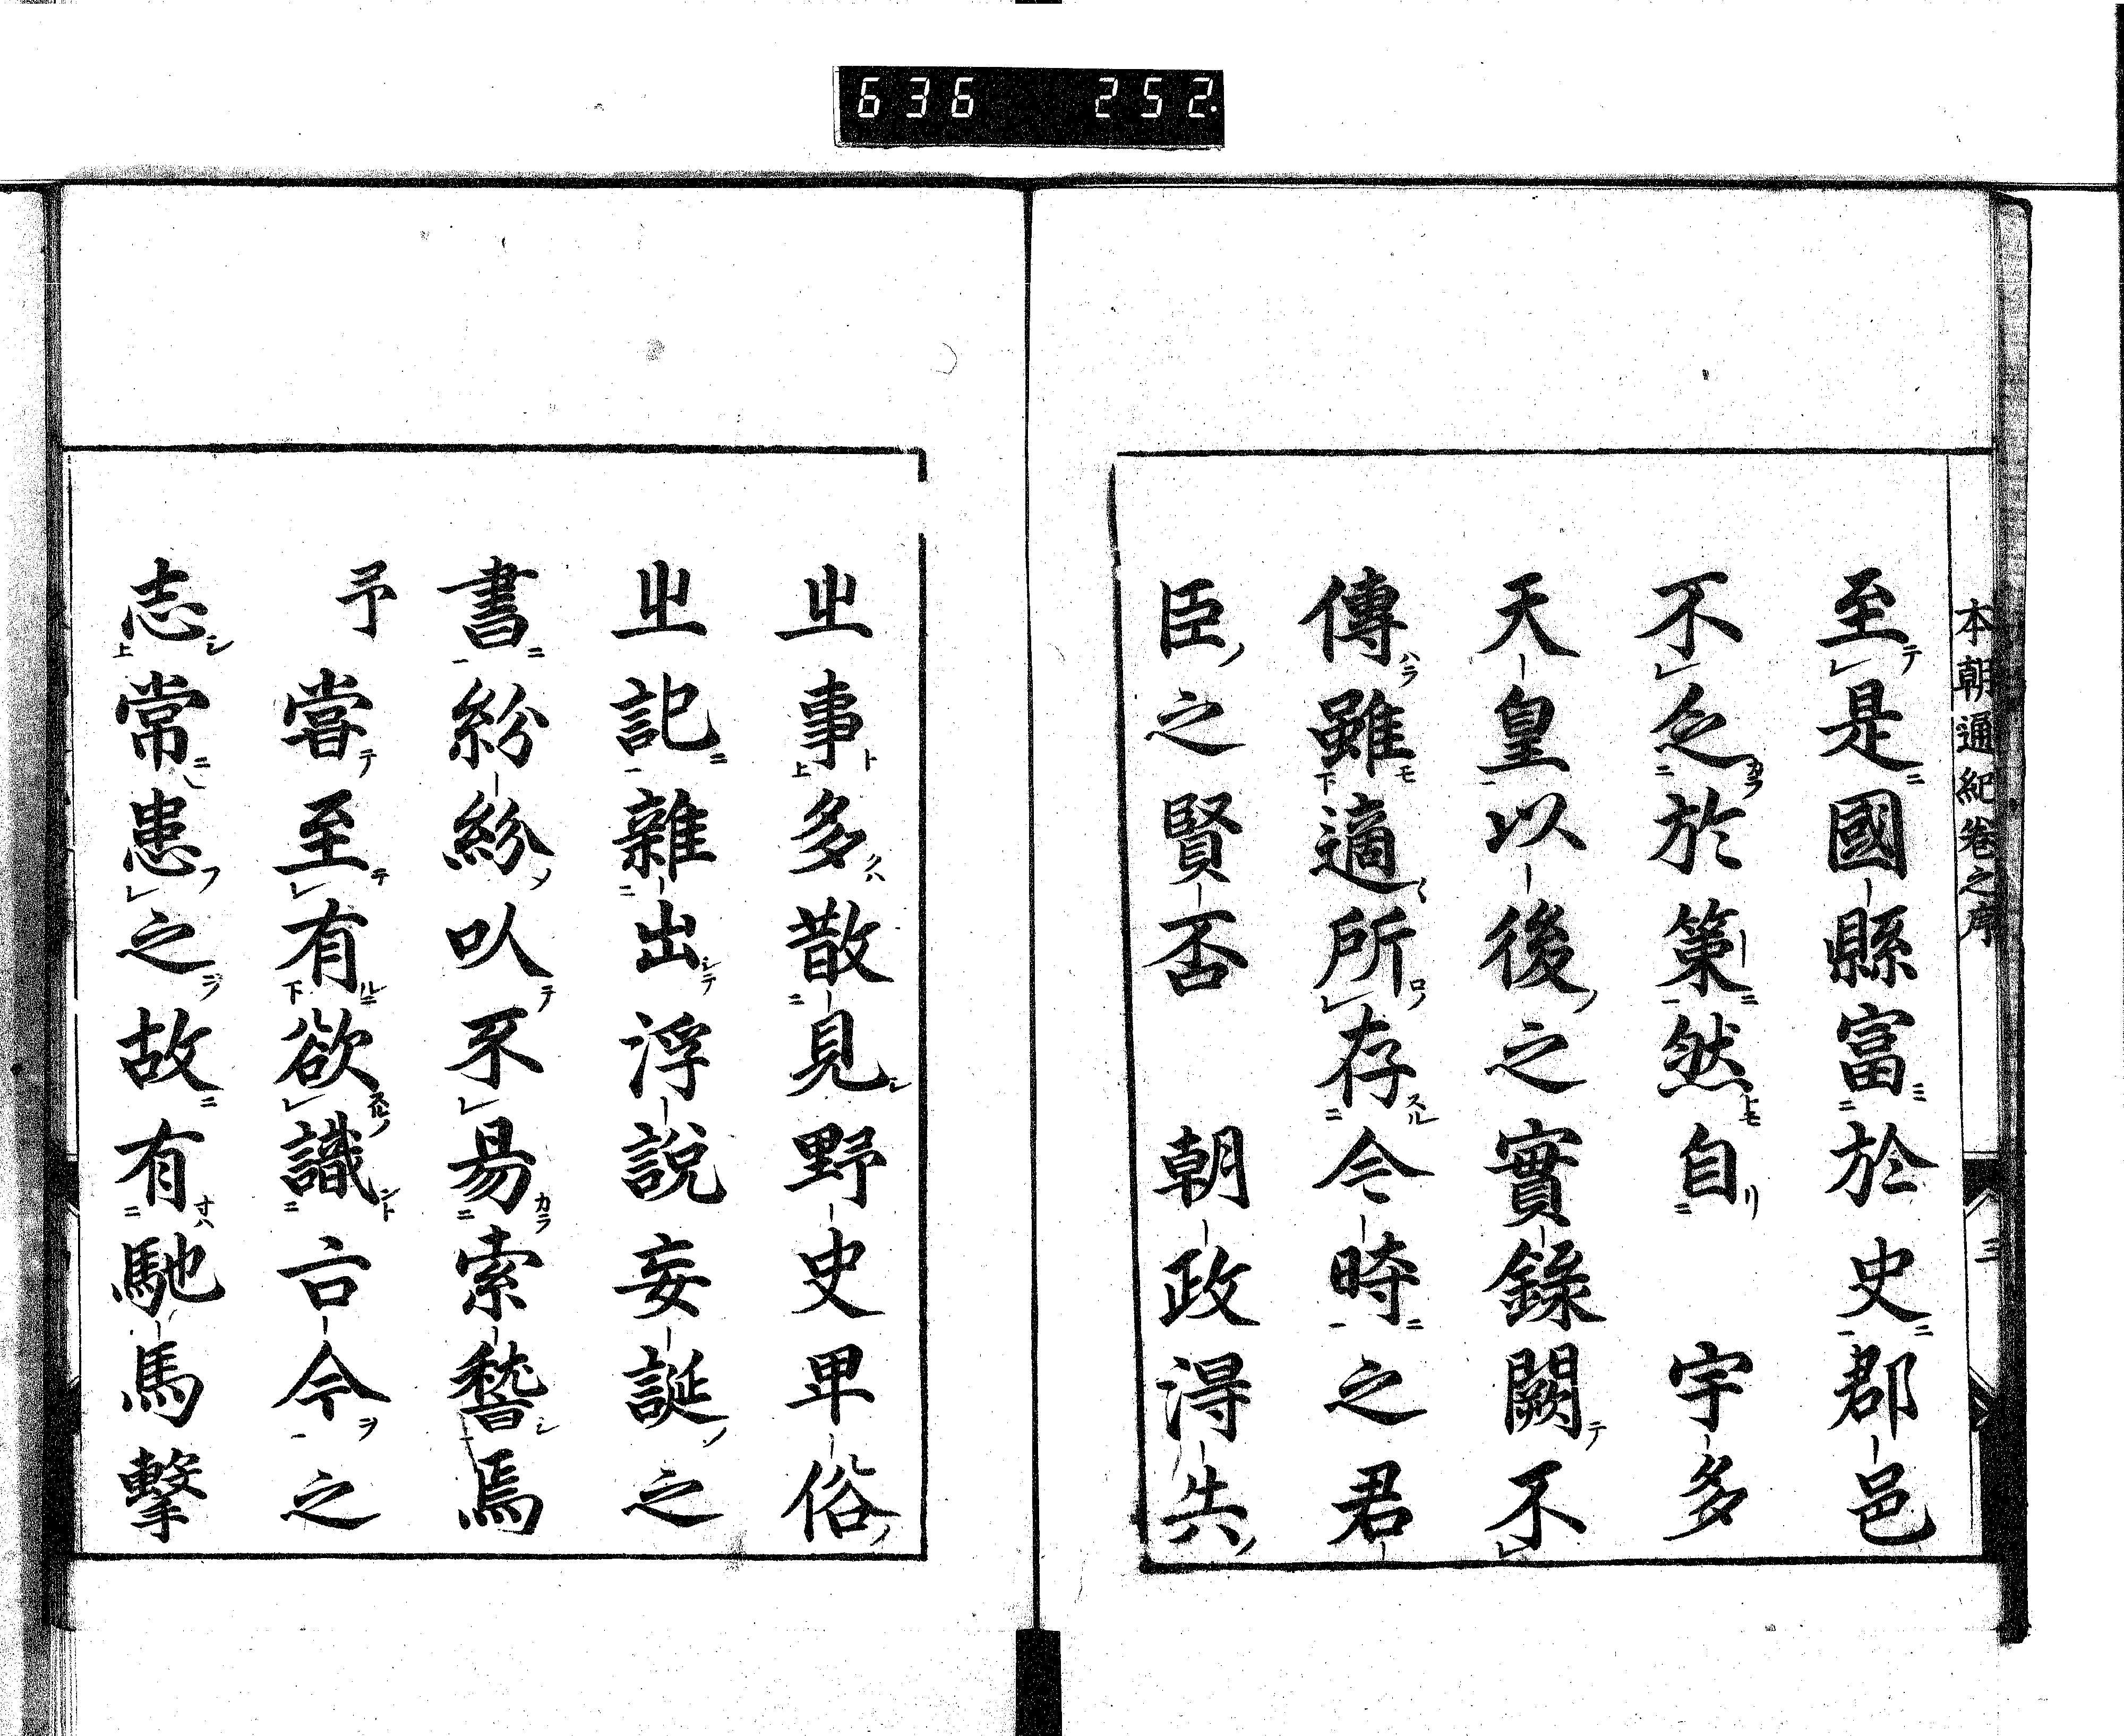 636 252
本朝通紀卷之序 三
至是國縣富於史郡邑
不乏於策然自　宇多
天皇以後之實錄闕不
傳雖適所存今時之君
臣之賢否　朝政得失
㞢事多散見野史卑俗
㞢記雜出浮說妄誕之
書紛紛㕥不易索稽焉
予嘗至有欲識古今之
志常患之故有馳馬擊